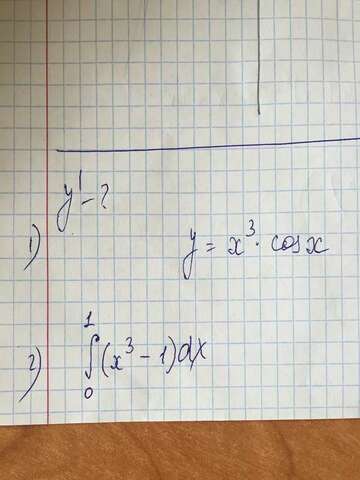 y' - ?
1) y = x³ · cosx
2) ∫₀¹ (x³ - 1) dx